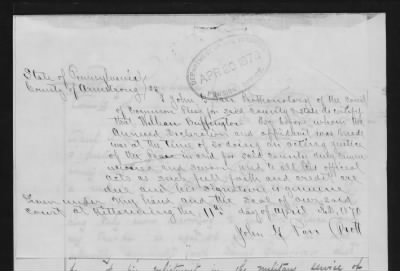 State of Pennsylvania
County of Armstrong SS
I John G Parr Prothonotary of the Court
of Common Pleas for said County & State do certify
that William Buffington Esq before whom the
annexed declaration and affidavit was made
was at the time of so doing an acting Justice
of the Peace in and for said County duly
and sworn and to all his official
acts as such full faith and credit are
due and his signature is genuine
Given under my hand and the seal of our said
court at Kittanning the 11th day of April AD. 1870
John G Parr Proth
APR 20 1870
his enlistment in the military service of